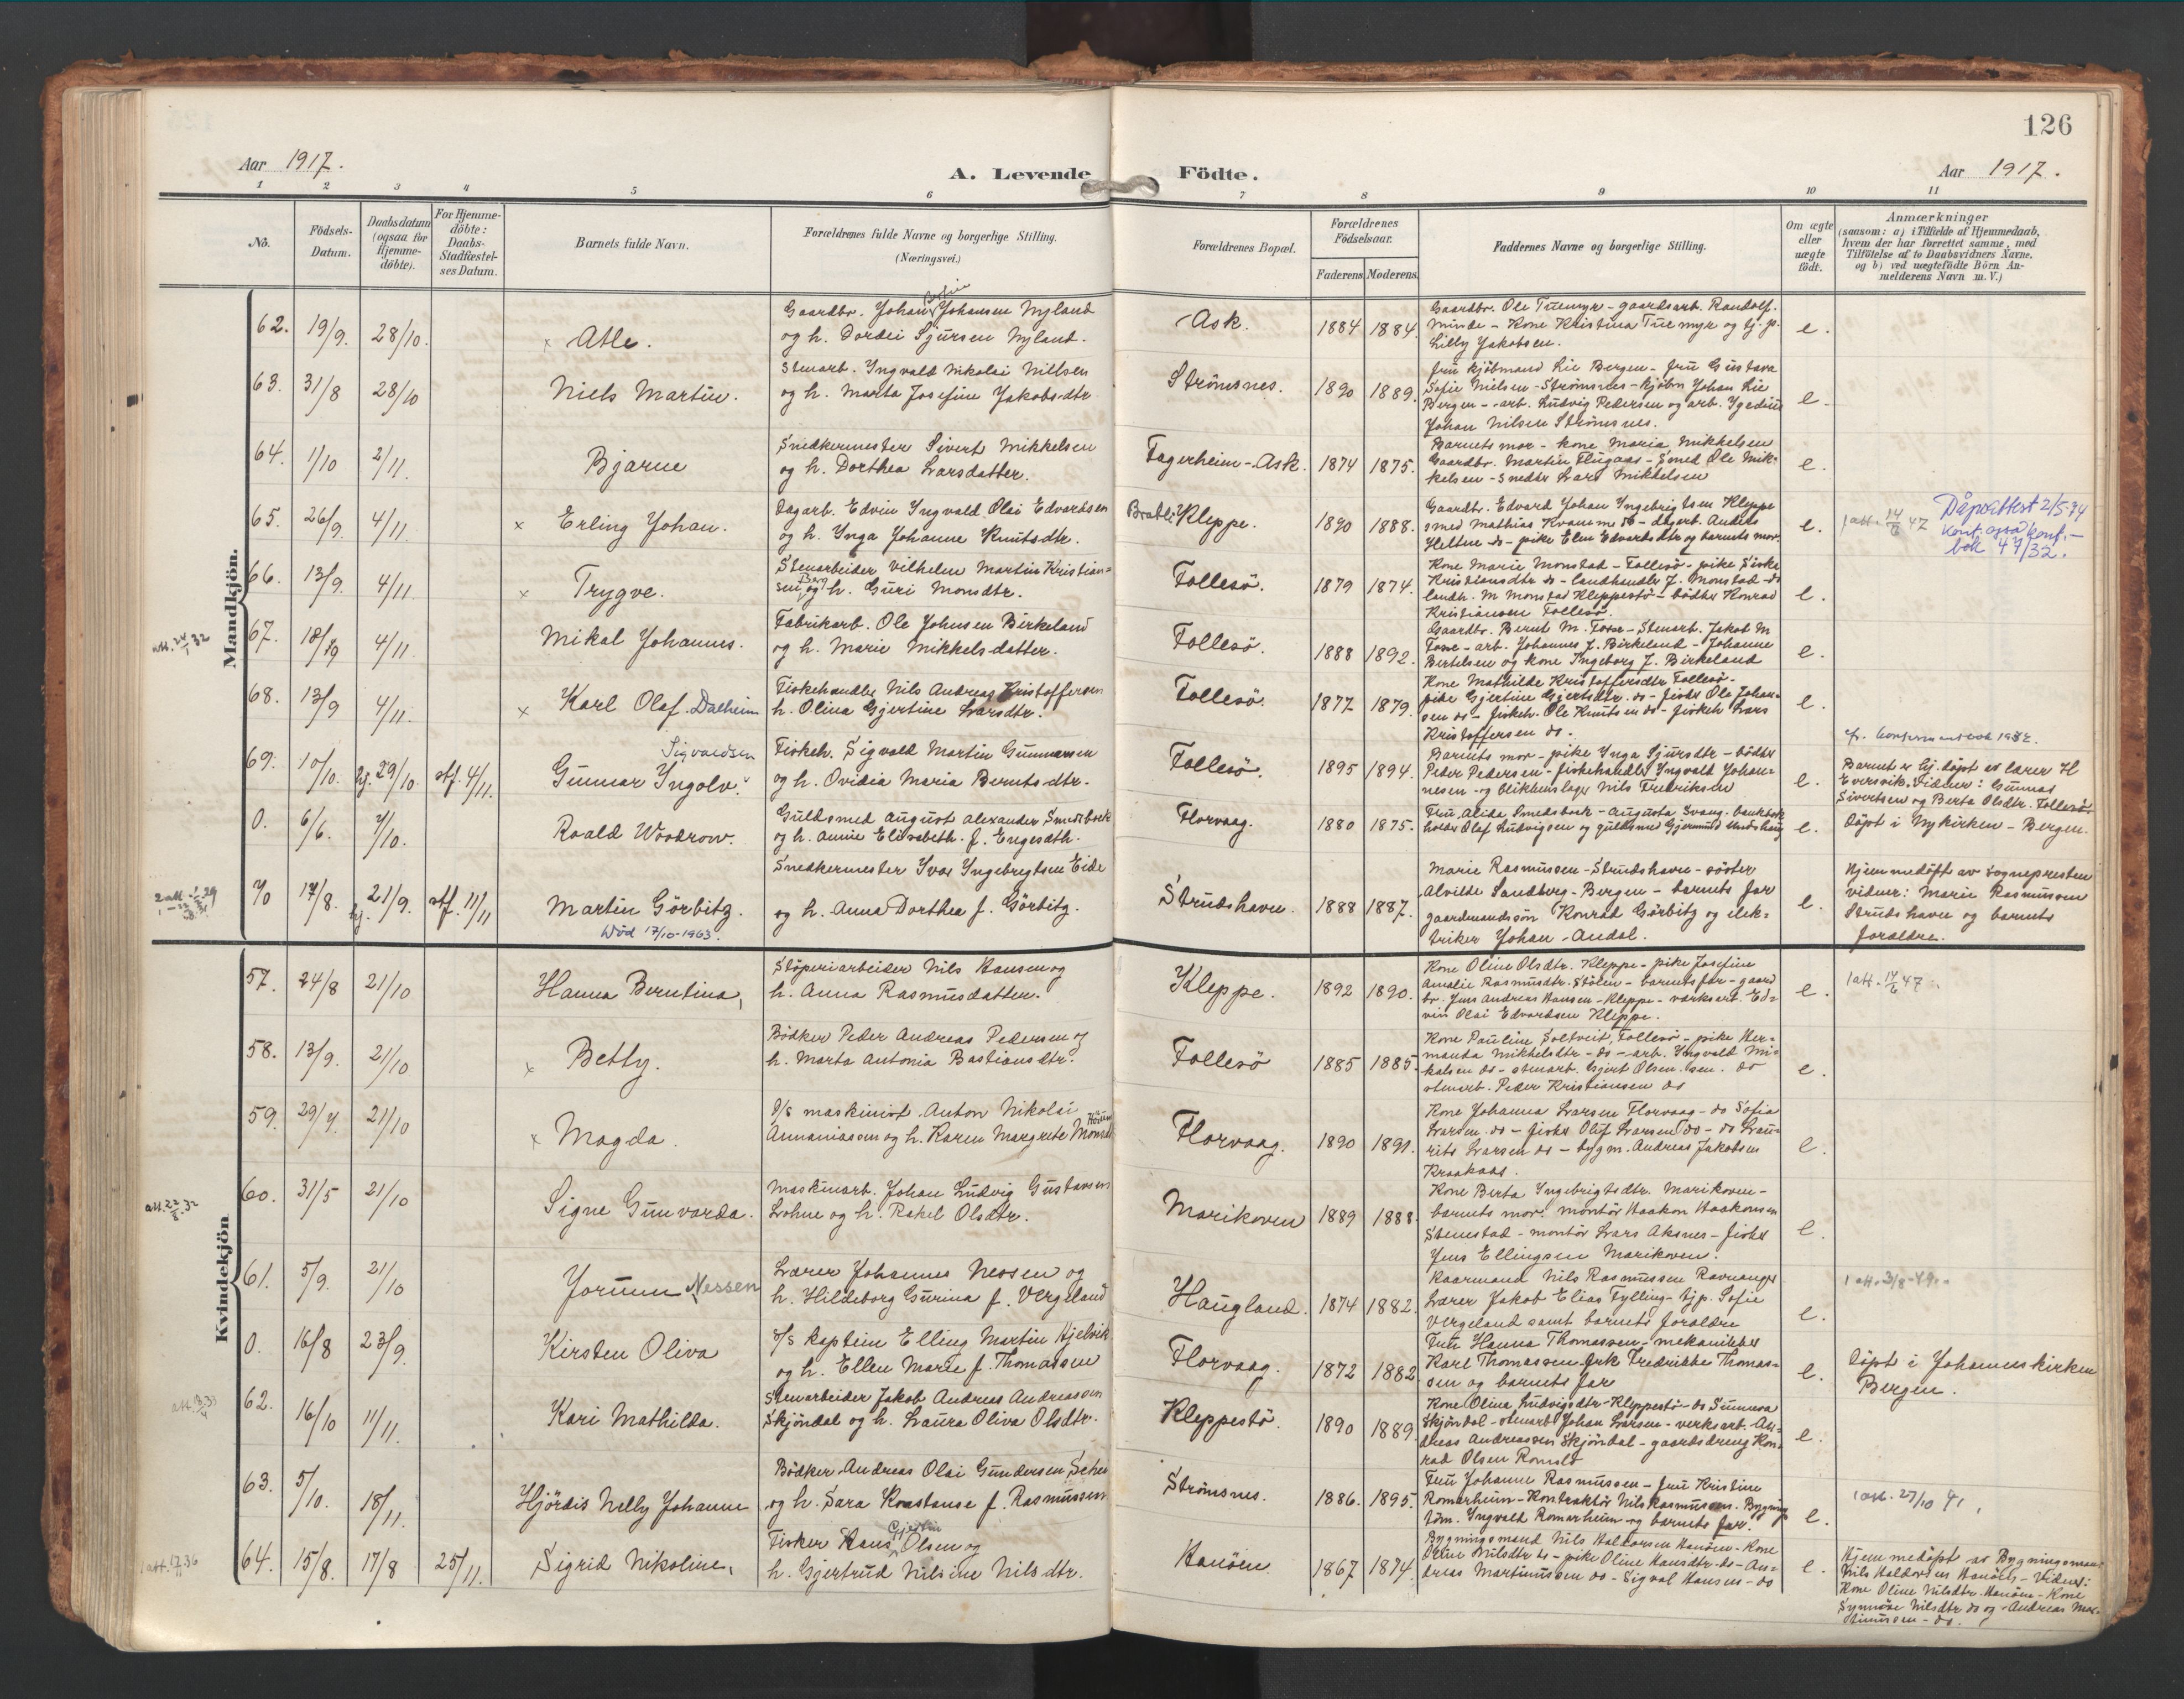 126
Aar 1917.
A. Levende Födte.
Aar 1917.
1 2 3 4 5 6 7 8 9 10 11
No.
Födsels-Datum.
Daabsdatum (ogsaa for Hjemmedöbte).
For Hjemmedöbte: Daabs-Stadfæstelses Datum.
Barnets fulde Navn.
Forældrenes fulde Navne og borgerlige Stilling. (Næringsvei.)
Forældrenes Bopæl.
Forældrenes Födselsaar.
Faderens. Moderens.
Faddernes Navne og borgerlige Stilling.
Om ægte eller uægte födt.
Anmærkninger
(saasom: a) i Tilfælde af Hjemmedaab, hvem der har forrettet samme, med Tilföielse af to Daabsvidners Navne, og b) ved uægtefödte Börn Anmelderens Navn m. V.)
Mandkjön.
62. 19/9. 28/10. × Atle.
Gaardbr. Johan Johansen Nyland
og h. Dordei Sjursen Nyland.
Ask. 1884 1884.
Gaardbr. Ole Tuemyr - gaardsarb. Randolf.
Minde - Kone Kristina Tuemyr og tj. p.
Lilly Jakobsen.
e.
63. 31/8 28/10 Niels Martin.
Stenarb. Ingvald Nikolai Nillsen
og h. Marta Josefine Jakobsdtr
Strömsnes. 1890 1889.
fru kjöbmand Lie Bergen - fru Gustava
Sofie Nielsen - Strömsnes - kjöbm Johan Lie
Bergen - arb. Ludvig Pedersen og arb.
Johan Nilsen Strömsnes.
e.
64. 1/10 2/11. Bjarne
Snedkermester Sivert Mikkelsen
og h. Dorthea Larsdatter.
Fagerheim - Ask. 1874 1875.
Barnets mor - kone Maria Mikkelsen
Gaardbr. Martin Flugaas - Smed Ole Mik-
kelsen - snedker Lars Mikkelsen
e.
65. 26/9. 4/11. × Erling Johan.
Dagarb. Edvin Ingvald Olai Edvardsen
og h. Inga Johanne Knutsdtr.
Kleppe. 1890 1888.
Gaardbr. Edvard Johan Ingebrigtsen Kleppe
smed Mathias Kvamme do - dagarb. Anders
Heltne do - pike Elen Edvardsdtr og barnets mor.
e.
1 att. 14/6 47
Dåpsattest 2/5-34
konf.
bok 47/32.
66. 13/9. 4/11. × Trygve.
Stenarbeider Vilhelm Martin Kristian-
sen Berg og h. Guri Monsdtr.
Follesö. 1879 1874.
Kone Marie Monstad - Follesö - pike Siske
Kristiansdtr do - landhandler J. Monstad - do
landh. M Monstad Kleppestö - bödker Konrad
Kristiansen Follesö.
e.
att. 24/1 32
67. 18/9 4/11. Mikal Johannes.
Fabrikarb. Ole Johnsen Birkeland
og h. Marie Mikkelsdatter.
Follesö. 1888 1892.
Gaardbr. Bernt M. Fosse - Stenarb. Jakob M
Fosse - arb. Johannes J. Birkeland - Johanne
Bertelsen og kone Ingeborg J. Birkeland
e.
68. 13/9 4/11. × Karl Olaf. Dalheim
Fiskehandler Nils Andreas Kristoffersen
h. Olina Gjertine Larsdtr.
Follesö. 1877 1879.
Kone Mathilde Kristoffersdtr Follesö -
pike Gjertine Gjertsdtr. do - fisker Ole Johan-
sen do - fiskeh. Ole Knutsen do - fiskeh Lars
Kristoffersen do.
e.
69. 10/10. hj. 29/10 stf. 4/11. Gunnar Ingolv. Sigvaldsen
Fiskeh. Sigvald Martin Gunnarsen
og h. Ovidia Maria Berntsdtr.
Follesö. 1895 1894.
Barnets mor - pike Inga Sjursdtr - bödker
Peder Pedersen - fiskehandler Ingvald Johan-
nesen - og blikkenslager Nils Fredriksen
e.
Barnet er hj. döpt av lærer H
Eversvik. Vidner: Gunnar
Sivertsen og Berta Olsdtr. Follesö
0. 6/6. 7/10. Roald Woodrow.
Guldsmed August Alexander Smedsboek
og h. Annie Elisabeth f. Engesæth.
Florvaag. 1880 1875.
Fru Alida Smedsboek - Augusta Svang - bankbok
holder Olaf Ludvigsen og guldsmed Gjermund
e.
Döpt i Nykirken - Bergen.
70 17/8. hj. 21/9. stf. 11/11 Martin Görbitz.
Död 17/10-1963.
Snedkermester Ivar Ingebrigtsen Eide
og h. Anna Dorthea f. Görbitz.
Strudshavn. 1888 1887.
Marie Rasmussen - Strudshavn - söster
Alvilde Sandberg - Bergen - barnets far
gaardmandssön Konrad Görbitz og elek-
triker Johan Andal.
e.
Hjemmedöpt av sognepresten
vidner: Marie Rasmussen
Strudshavn og barnets
foraldre.
Kvindekjön
57. 24/8 21/10 Hanna Berntina,
Stöperiarbeider Nils Hansen og
h. Anna Rasmusdatter.
Kleppe. 1892 1890.
Kone Oline Olsdtr. Kleppe - pike Josefine
Amalie Rasmusdtr. Stölen - barnets far - gaard
br. Jens Andreas Hansen - Kleppe - verksarb. Ed-
vin Olai Edvardsen Kleppe.
e.
1 att. 14/6 47
58. 13/9. 21/10 × Betty.
Bödker Peder Andreas Pedersen og
h. Marta Antonia Bastiansdtr.
Follesö 1885 1885.
Kone Pauline Soltveit, Follesö - pike Her-
manda Mikkelsdtr - do - arb. Ingvald Mi-
kalsen do - stenarb. Gjert Olsen. do
stenarb. Peder Kristiansen do
e.
59. 29/9. 21/10 × Magda.
D/S maskinist Anton Nikolai
Annaniassen og h. Karen Margrete Monsd
Florvaag. 1890 1891.
Kone Johanna Larsen Florvaag - do Sofia
Larsen do - fisker Oluf Larsen do - do Lau-
rits Larsen do - bygm. Andreas Jakobsen
Kraakaas.
e.
att. 22/8 32
60. 31/5 21/10 Signe Gunvarda.
Maskinarb. Johan Ludvig Gustavsen
Lohne og h. Rakel Olsdtr.
Marikoven 1889 1888.
Kone Berta Ingebrigtsdtr. Marikoven -
barnets mor. montör Haakon Haakonsen
Stenestad - montör Lars Aksnes - fisker
Jens Ellingsen Marikoven.
e.
61. 5/9. 21/10 Jorunn Nessen
Lærer Johannes Nessen og
h. Hildeborg Gurina f. Vergeland
Haugland. 1874 1882.
Kaarmand Nils Rasmussen Ravnanger
Lærer Jakob Elias Tylling - tjp. Sofie
Vergeland samt barnets foraldre
e.
1 att. 3/8-49
0. 16/8 23/9. Kirsten Oliva
D/S kaptein Elling Martin Hjelvik
og h. Ellen Marie f. Thomassen
Florvaag. 1872 1882
Fru Hanna Thomassen - mekaniker
Karl Thomassen frk Fredrikke Thomas-
sen og barnets far
e.
Döpt i Johanneskirken
Bergen.
62. 16/10 11/11. Kari Mathilda.
Stenarbeider Jakob Andreas Andreassen
Skjöndal og h. Laura Oliva Olsdtr.
Kleppestö. 1890 1889.
Kone Olina Ludvigsdtr - Kleppestö - do Sunneva
Skjöndal - stenarb Johan Larsen - verksarb. An-
dreas Andreassen Skjöndal - gaardsdreng Kon-
rad Olsen Romslo
e.
63. 5/10. 18/11. Hjördis Nelly Johanne
Bödker Andreas Olai Gundersen
og h. Sara Konstanse f. Rasmussen
Strömsnes. 1886. 1895.
Fru Johanne Rasmussen - fru Kristine
Romarheim - Kontraktör Nils Rasmussen.
töm. Ingvald Romarheim og barnets far.
e.
1 att. 27/10 41
64. 15/8. 17/8 25/11. Sigrid Nikoline,
Fisker Hans Gjertin Olsen og
h. Gjertrud Nilsine Nilsdtr.
Hanöen. 1867 1874
Bygningsmand Nils Haldorsen Hanöen - Kone
Oline Nilsdtr do - pike Oline Hansdtr do - An-
dreas Martinussen do - Sigval Hansen - do
e.
Hjemmedöpt av Bygningsman
Nils Haldorsen Hanöen - Vidner:
Kone Oline Nilsdtr. Hanöen - Kone
Synnöve Nilsdtr do og Andreas Mar-
tinussen - do.